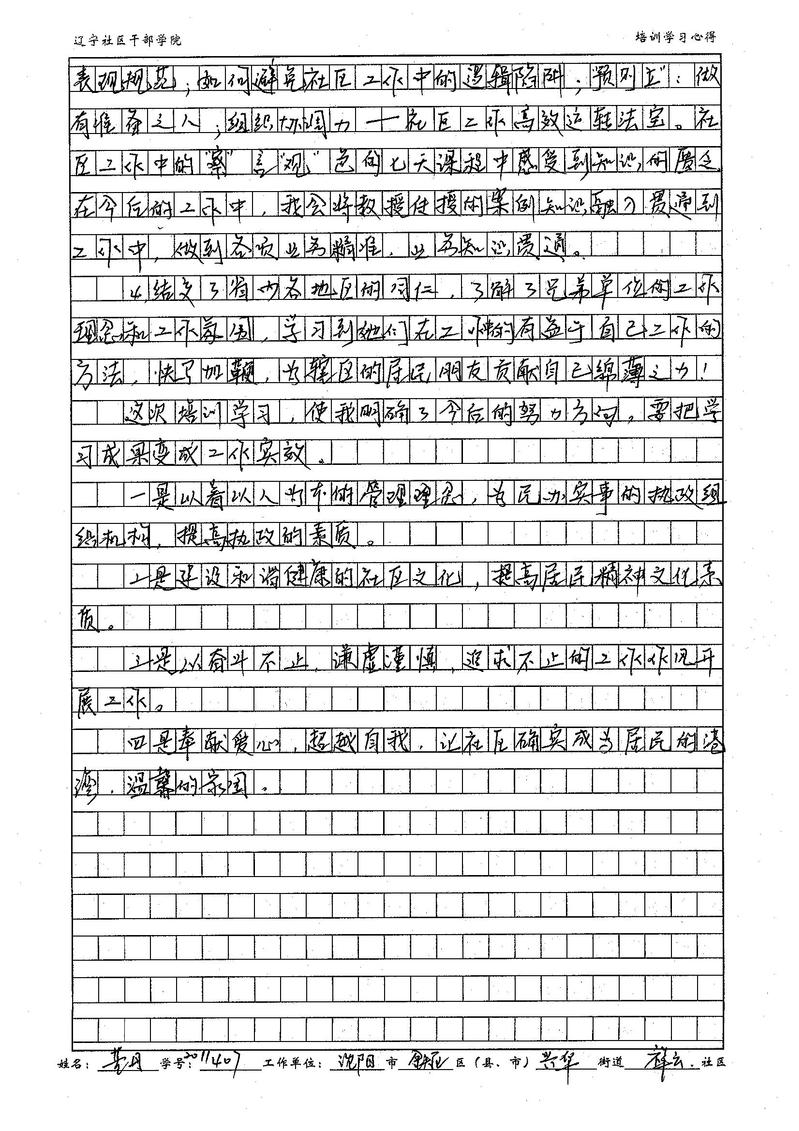 辽宁社区干部学院 培训学习心得
表现规范；如何避免社区工作中的逻辑陷阱；"预则立"：做
有准备之人；组织协调力——社区工作高效运转法宝。社
区工作中的"察"言"观"色的七天课程中感受到知识的匮乏
在今后的工作中，我会将教授传授的案例知识融入贯通到
工作中，做到各项业务精准，业务知识贯通。
4结交了省内各地区的同仁，了解了兄弟单位的工作
理念和工作氛围，学习到他们在工作中的有益于自己工作的
方法，快马加鞭，为辖区的居民朋友贡献自己绵薄之力！
这次培训学习，使我明确了今后的努力方向，要把学
习成果变成工作实效。
一是以着以人为本的管理理念，为民办实事的执政组
织机构，提高执政的素质。
二是建设和谐健康的社区文化，提高居民精神文化素
质。
三是以奋斗不止，谦虚谨慎，追求不止的工作作风开
展工作。
四是奉献爱心，超越自我，让社区确实成为居民的港
湾，温馨的家园。
姓名： 学号：2011407 工作单位：沈阳 市 区（县、市）兴华 街道 祥云 社区